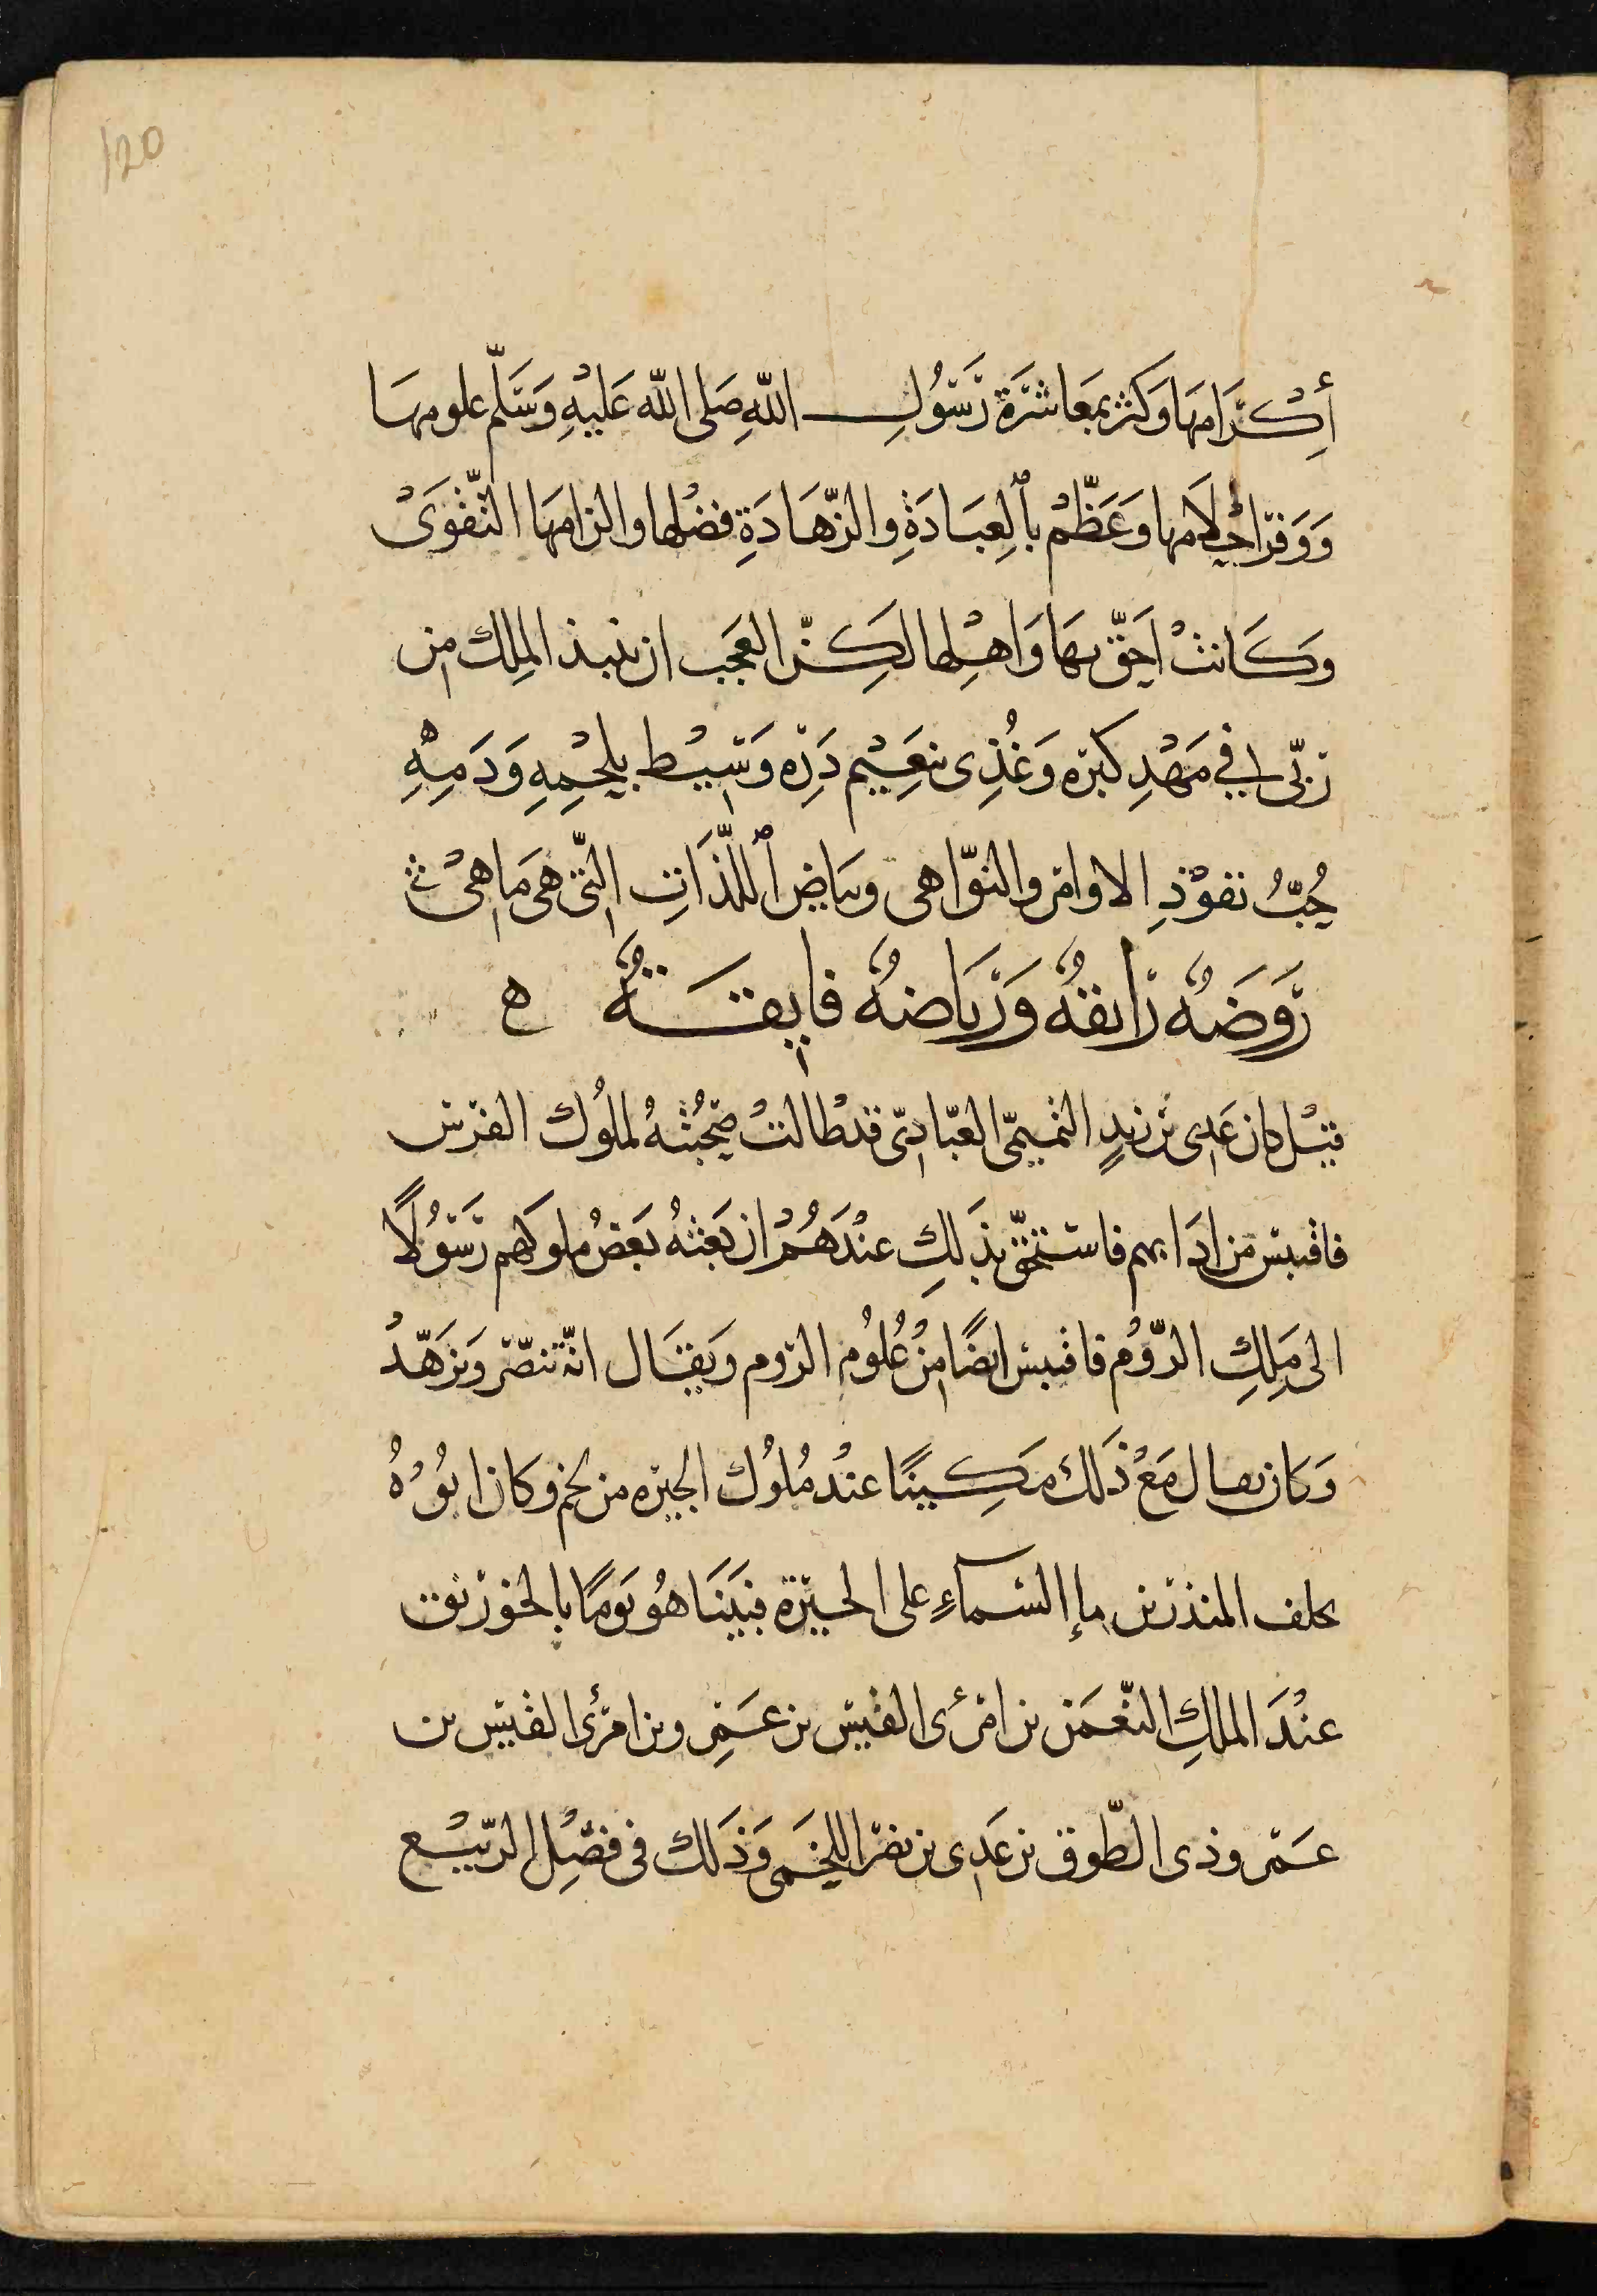 120
أِكْرَامهَا وَكثر بمعَاشَرَة رَسُولِ اللهِ صَلى الله عَليْهِ وَسَلّم علومهَا
وَوَفرّ احْلَامها وَعَظّمْ بالِعبَادَةِ والزّهَادَةِ فضْلها والزامهَا التّقوَىْ
وكَانتْ اَحَقّ بهَا وَاهْلها لكِنّ العجَب ان ينبذ المِلك من
رُبّى في مَهْدِ كبرْه وَغُذِى بنعِيْم دَرِّه وَسِيْط بِلحْمِهِ وَدَمِهِ
حُبُّ نفوْذِ الاوامر والنوّاهى وسَاير اللّذَاتِ التّى هى مَا هىْ
رَوَضةٌ رَايقةٌ وَرَياضةٌ فايقَةٌ ه
قيْل كان عَدى بن زيدٍ التميمّى العبّادىّ قد طالتْ صُحْبتهُ لملوُك الفرس
فاقبس من ادَابهم فاستحقّ بذَلِك عنْدَهُمْ ان بَعَثهُ بَعَضُ ملوكَهم رَسَوُلاً
الى مَلِكِ الروّمُ فاقبس ايضًا مِنْ عُلوُم الرّوم وَيقَال انهّ تنصّر وَتزهّدْ
وَكان يقال مَعْ ذَلك مَكِيَنًا عنْد مُلوُك الحيْره من لخم وكان ابُوْهُ
يخلف المنذر بن مإ السّمآءِ على الحيْرة فبَيَنَا هُو يَومًا بالخورْنق
عنْدَ الملكِ النّعمَن بن امرئ القيْس بن عَمِرو بن امرئ القيْس بن
عَمْرو ذى الطّوق بن عَدِى بن نصْر اللخَمىّ وَذَلك فى فصْلِ الربّيْع